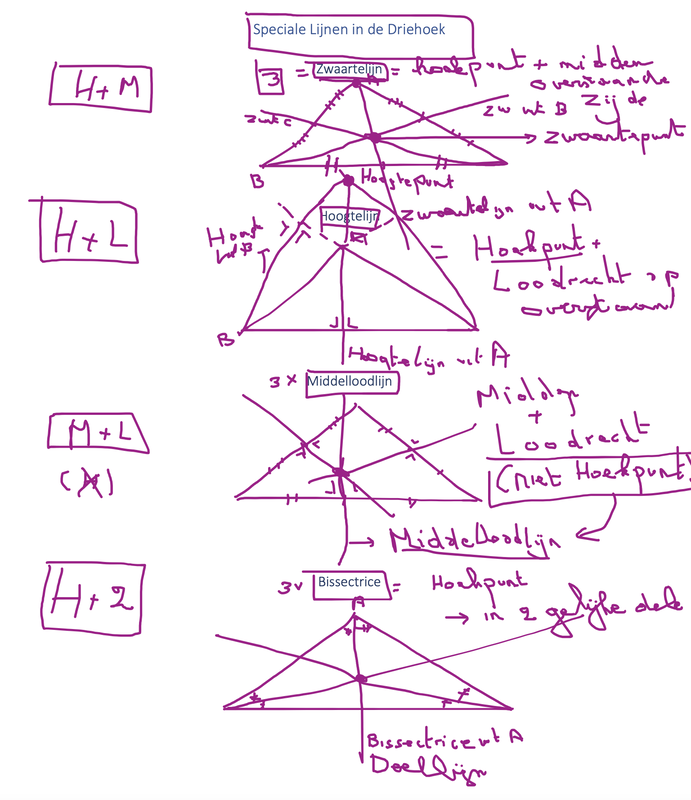 Speciale Lijnen in de Driehoek
H+M
3 = Zwaartelijn = hoekpunt + midden
overstaande
zijde
A
zw uit C
zw uit B
zwaartepunt
B
H
Hoogtepunt
H+L
Hoogtelijn
zwaartelijn uit A
Hoogt
uit B
= Hoekpunt +
Loodrecht op
overstaand
B
Hoogtelijn uit A
3 x Middelloodlijn
M+L
(H)
Midden
+
Loodrecht
(niet Hoekpunt)
→ Middelloodlijn
H+2
3 v Bissectrice = Hoekpunt
→ in 2 gelijke dele
A
Bissectrice uit A
Deellijn